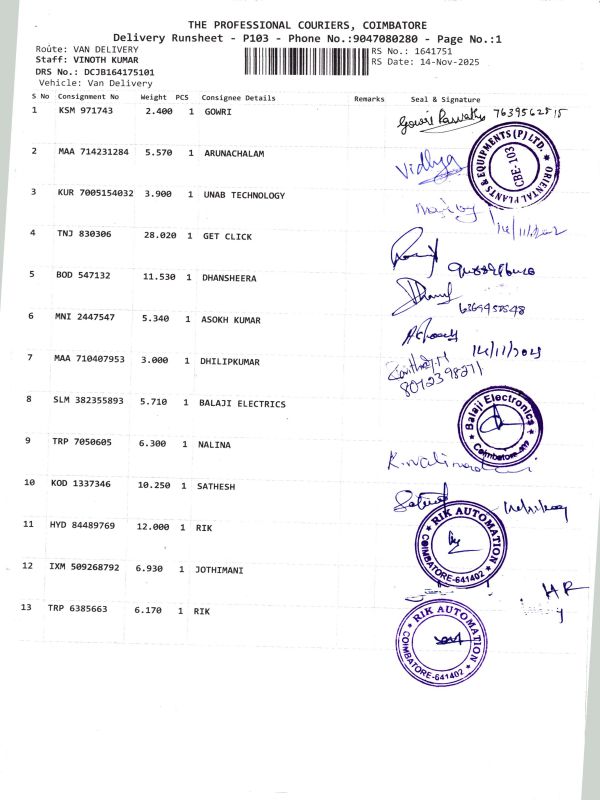 THE PROFESSIONAL COURIERS, COIMBATORE
Delivery Runsheet - P103 - Phone No.:9047080280 - Page No.:1
Route: VAN DELIVERY
RS No.: 1641751
Staff: VINOTH KUMAR
RS Date: 14-Nov-2025
DRS No.: DCJB164175101
Vehicle: Van Delivery
S No Consignment No Weight PCS Consignee Details Remarks Seal & Signature
1 KSM 971743 2.400 1 GOWRI
2 MAA 714231284 5.570 1 ARUNACHALAM
Vidhya
ORIENTAL PLANTS & EQUIPMENTS (P) LTD.
CBE-103
3 KUR 7005154032 3.900 1 UNAB TECHNOLOGY
4 TNJ 830306 28.020 1 GET CLICK
5 BOD 547132 11.530 1 DHANSHEERA
6 MNI 2447547 5.340 1 ASOKH KUMAR
7 MAA 710407953 3.000 1 DHILIPKUMAR
8 SLM 382355893 5.710 1 BALAJI ELECTRICS
Balaji Electronics
9 TRP 7050605 6.300 1 NALINA
10 KOD 1337346 10.250 1 SATHESH
11 HYD 84489769 12.000 1 RIK
RIK AUTOMATION
COIMBATORE-641402
12 IXM 509268792 6.930 1 JOTHIMANI
HR
13 TRP 6385663 6.170 1 RIK
RIK AUTOMATION
COIMBATORE-641402